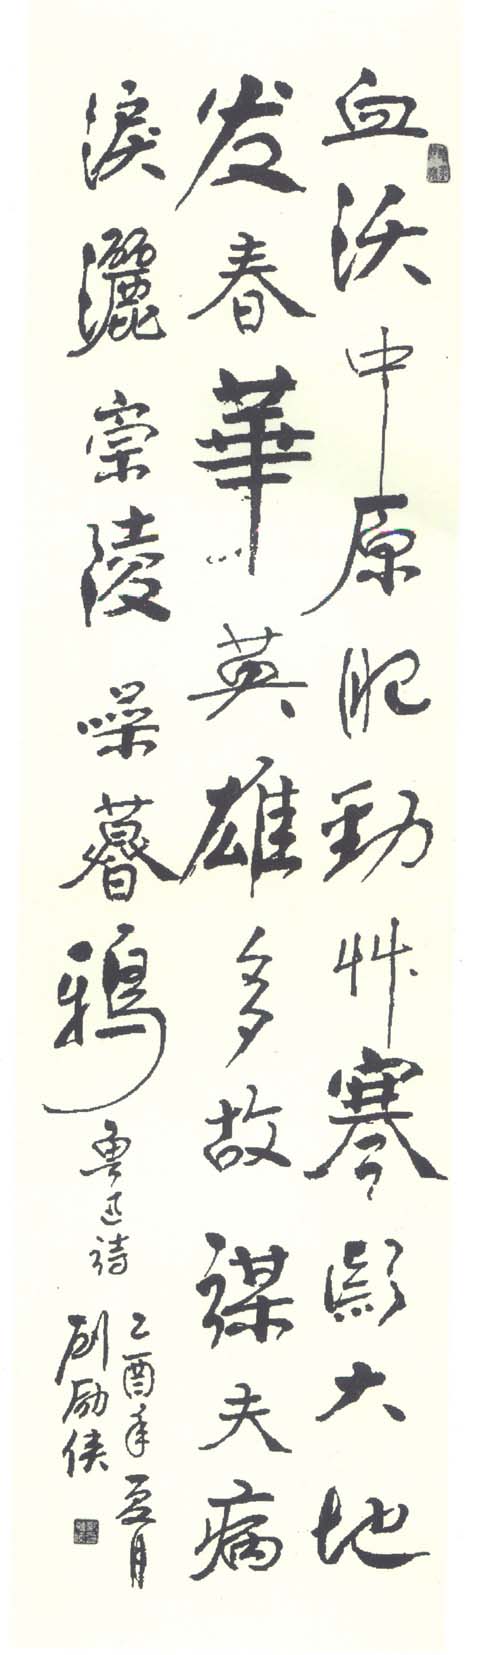 血沃中原肥劲艸寒凝大地
发春華英雄多故謀夫病
淚灑崇陵噪暮鴉 鲁迅诗
乙酉年夏月
刘励侠